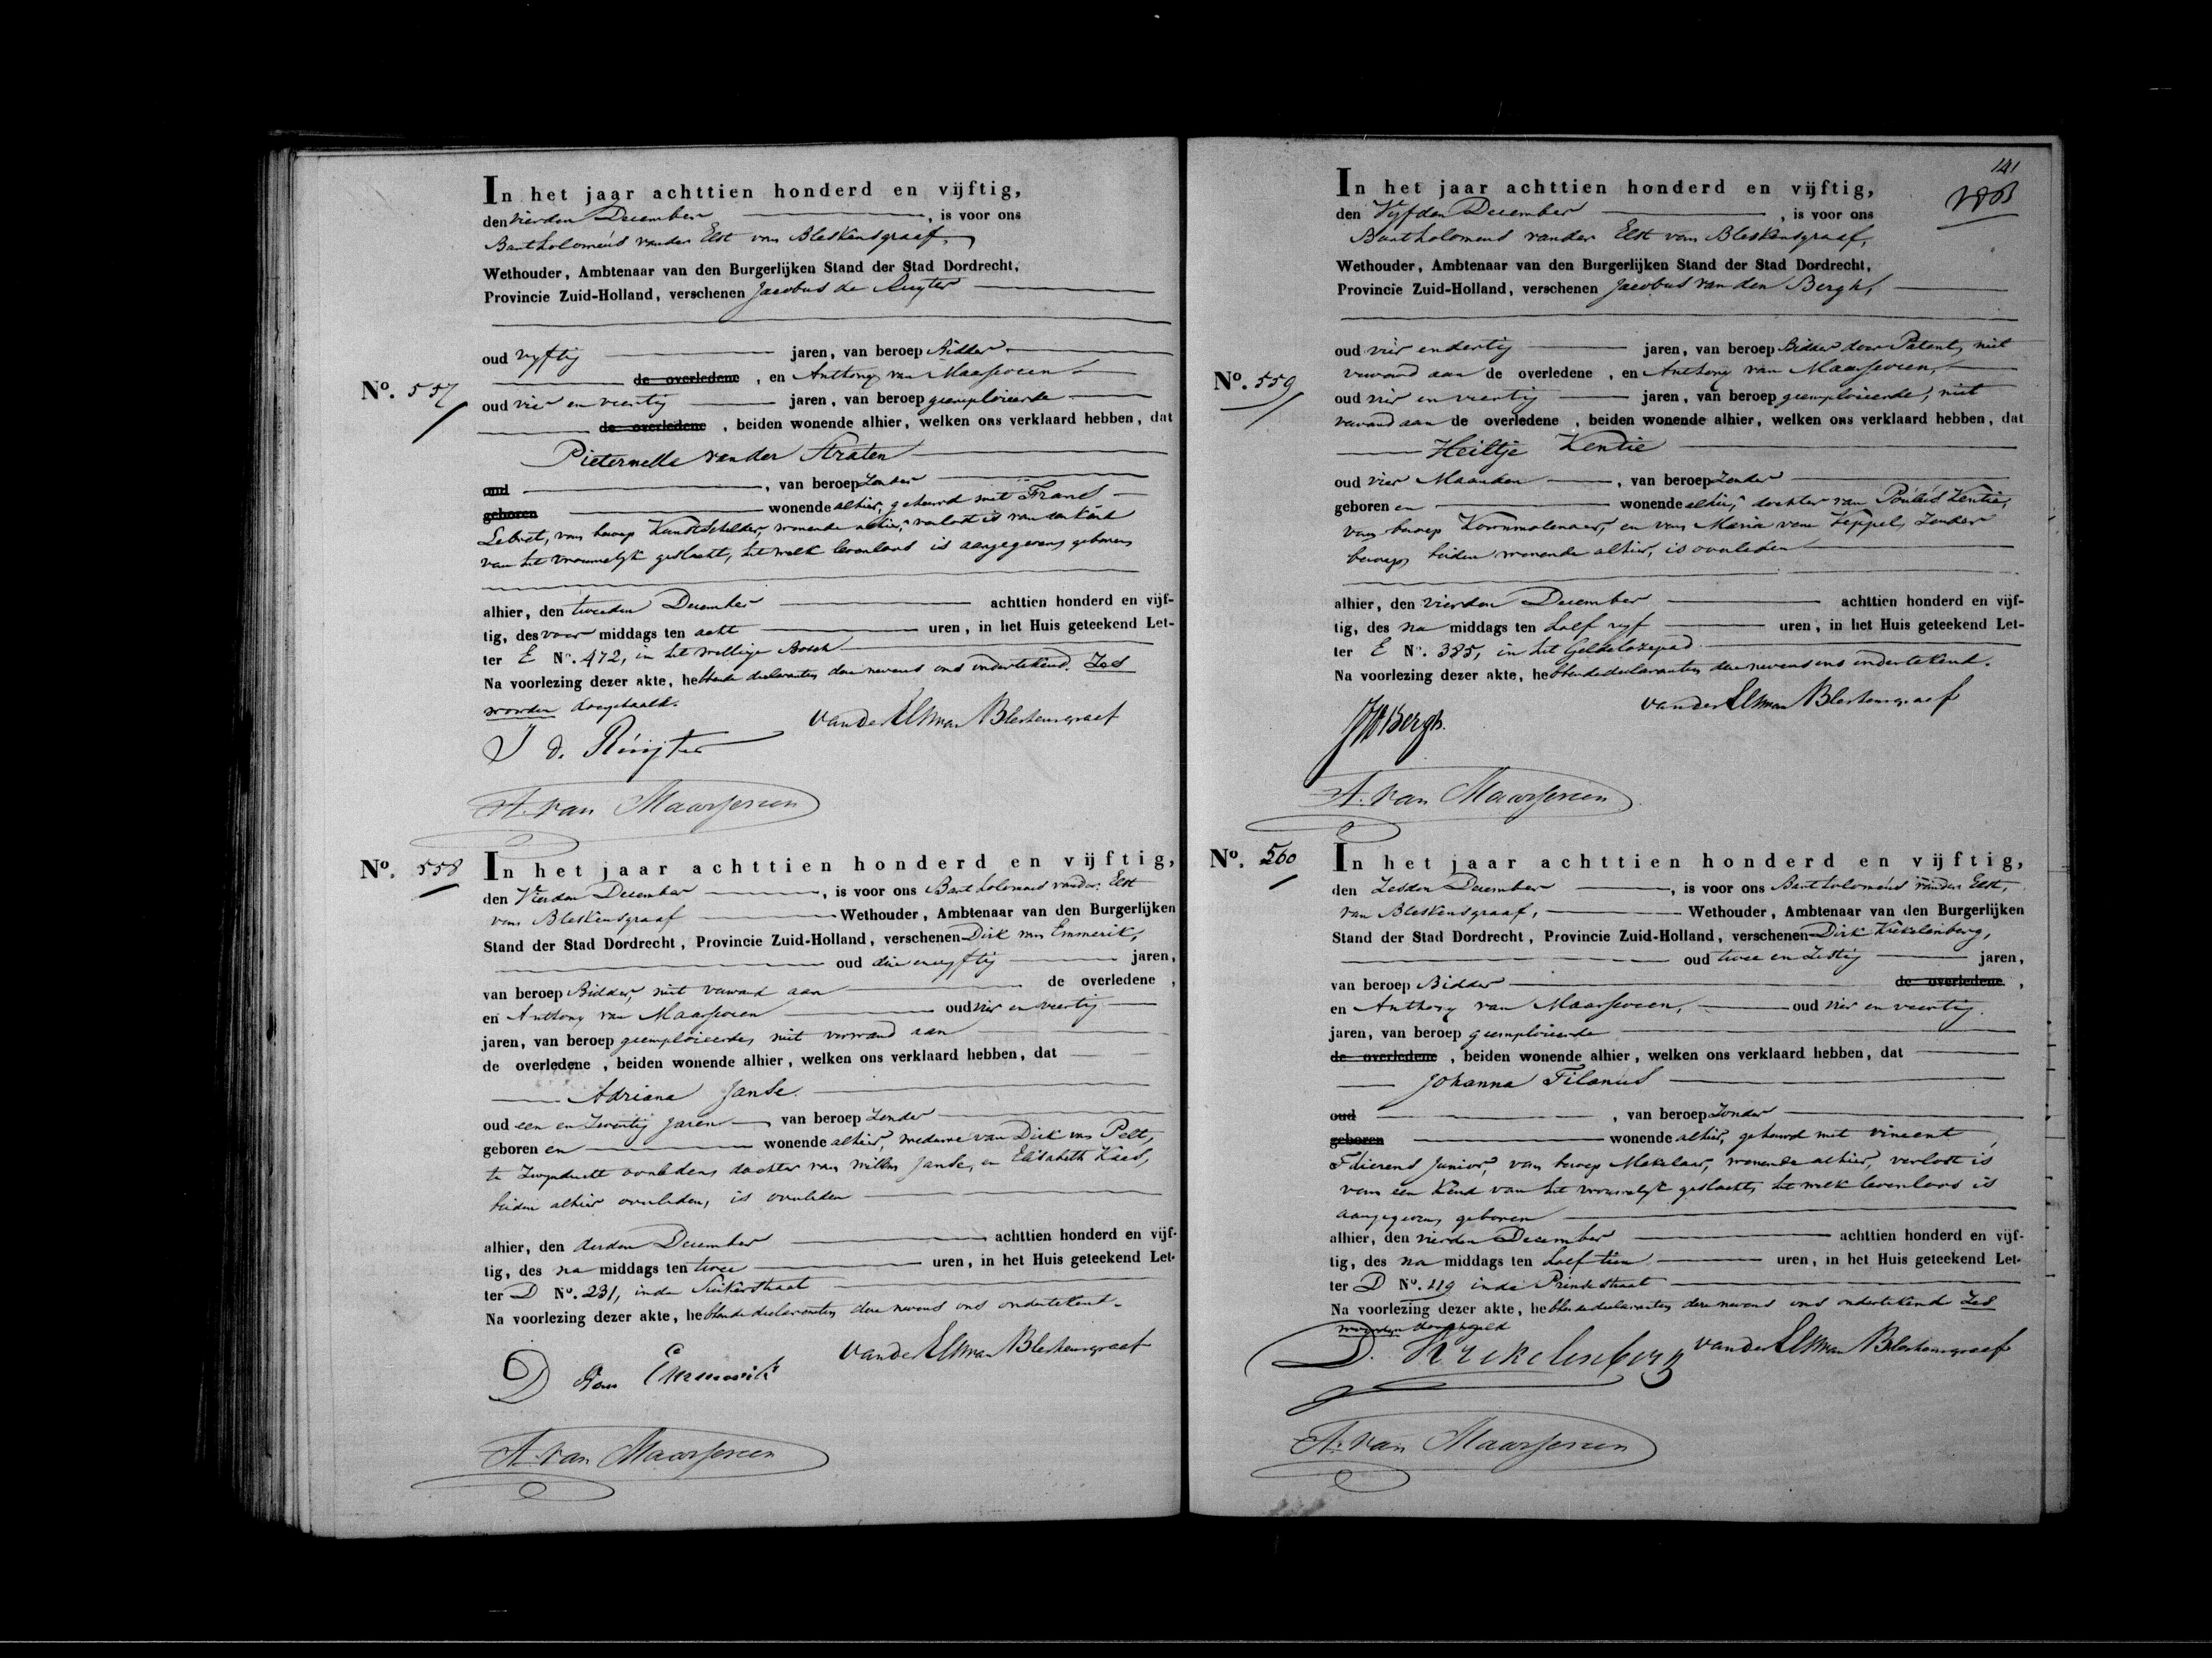 In het jaar achttien honderd en vijftig,
den vierden December, is voor ons
Bartholomeus vander Elst van Bleskensgraaf,
Wethouder, Ambtenaar van den Burgerlijken Stand der Stad Dordrecht,
Provincie Zuid-Holland, verschenen Jacobus de Ruyter
oud vyftig jaren, van beroep Bidder
No. 557
de overledene, en Anthony van Maarseveen
oud vier en veertig jaren, van beroep geemploieerde
de overledene, beiden wonende alhier, welken ons verklaard hebben, dat
Pieternella vander Straten
oud, van beroep Zonder
geboren wonende alhier, gehuwd met Frans
Lebret, van beroep Kunstschilder, wonende alhier, verlost is van een kind
van het vrouwelyk geslacht, het welk levenloos is aangegeven, geboren
alhier, den tweeden December achttien honderd en vijf-
tig, des voor middags ten acht uren, in het Huis geteekend Let-
ter E No. 472, in het willige Bosch
Na voorlezing dezer akte, hebbende declaranten deze nevens ons ondertekend. Zes
woorden doorgehaald.
J d. Ruijter vander Elst van Bleskensgraaf
A. van Maarseveen
No. 558
In het jaar achttien honderd en vijftig,
den Vierden December, is voor ons Bartholomeus vander Elst
van Bleskensgraaf Wethouder, Ambtenaar van den Burgerlijken
Stand der Stad Dordrecht, Provincie Zuid-Holland, verschenen Dirk van Emmerik,
oud drie en vyftig jaren,
van beroep Bidder, niet verwant aan de overledene,
en Anthony van Maarseveen oud vier en veertig
jaren, van beroep geemploieerde, niet verwand aan
de overledene, beiden wonende alhier, welken ons verklaard hebben, dat
Adriana Janse
oud een en Zeventig Jaren van beroep Zonder
geboren en wonende alhier, weduwe van Dirk van Pelt,
te Zwyndrecht overleden, dochter van Willem Janse, en Elisabeth Kaas,
beiden alhier overleden, is overleden
alhier, den derden December achttien honderd en vijf-
tig, des na middags ten twee uren, in het Huis geteekend Let-
ter D No. 231, in de Suikerstraat
Na voorlezing dezer akte, hebbende declaranten deze nevens ons ondertekend.
D van Emmerik vander Elst van Bleskensgraaf
A. van Maarseveen
141
In het jaar achttien honderd en vijftig,
den Vyfden December, is voor ons
Bartholomeus vander Elst van Bleskensgraaf,
Wethouder, Ambtenaar van den Burgerlijken Stand der Stad Dordrecht,
Provincie Zuid-Holland, verschenen Jacobus van den Bergh,
oud vier en dertig jaren, van beroep Bidder door Patent, niet
No. 559
verwand aan de overledene, en Anthony van Maarseveen,
oud vier en veertig jaren, van beroep geemploieerde, niet
verwand aan de overledene, beiden wonende alhier, welken ons verklaard hebben, dat
Heiltje Kentie
oud vier Maanden, van beroep Zonder
geboren en wonende alhier, dochter van Paulus Kentie,
van beroep Korenmolenaar, en van Maria van Keppel, Zonder
beroep, beiden wonende alhier, is overleden
alhier, den vierden December achttien honderd en vijf-
tig, des na middags ten half vyf uren, in het Huis geteekend Let-
ter E No. 385, in het Geldelozepad
Na voorlezing dezer akte, hebbende declaranten deze nevens ons ondertekend.
vander Elst van Bleskensgraaf
A. van Maarseveen
No. 560
In het jaar achttien honderd en vijftig,
den Zesden December, is voor ons Bartholomeus vander Elst,
van Bleskensgraaf, Wethouder, Ambtenaar van den Burgerlijken
Stand der Stad Dordrecht, Provincie Zuid-Holland, verschenen Dirk Krekelenberg,
oud twee en Zestig jaren,
van beroep Bidder de overledene,
en Anthony van Maarseveen, oud vier en veertig
jaren, van beroep geemploieerde
de overledene, beiden wonende alhier, welken ons verklaard hebben, dat
Johanna Filanus
oud, van beroep Zonder
geboren wonende alhier, gehuwd met Vincent
Junior, van beroep Makelaar, wonende alhier, verlost is
van een kind van het vrouwelyk geslacht, het welk levenloos is
aangegeven, geboren
alhier, den vierden December achttien honderd en vijf-
tig, des na middags ten half tien uren, in het Huis geteekend Let-
ter D No. 119 in de Prinsestraat
Na voorlezing dezer akte, hebbende declaranten deze nevens ons ondertekend Zes
woorden
D. Krekelenberg vander Elst van Bleskensgraaf
A. van Maarseveen